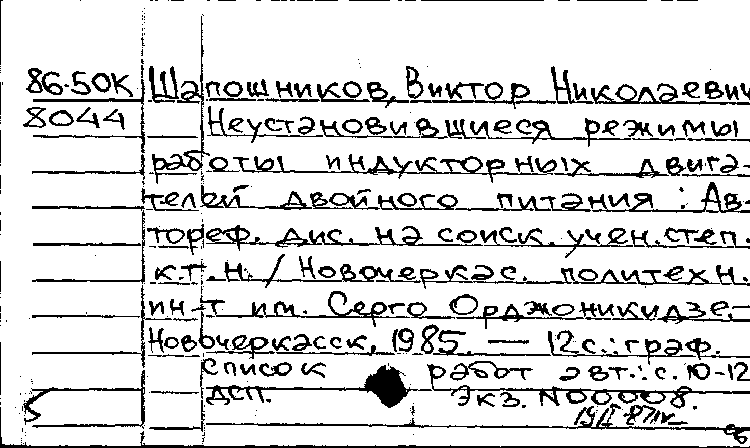 86-50К Шапошников, Виктор Николаевич
8044 Неустановившиеся режимы
работы индукторных двига-
телей двойного питания : Ав-
тореф. дис. на соиск. учен. степ.
к.т.н. / Новочеркас. политехн.
ин-т им. Серго Орджоникидзе.-
Новочеркасск, 1985. — 12 с.: граф.
Список работ авт.: с. 10-12
ДСП. Экз. N00008.